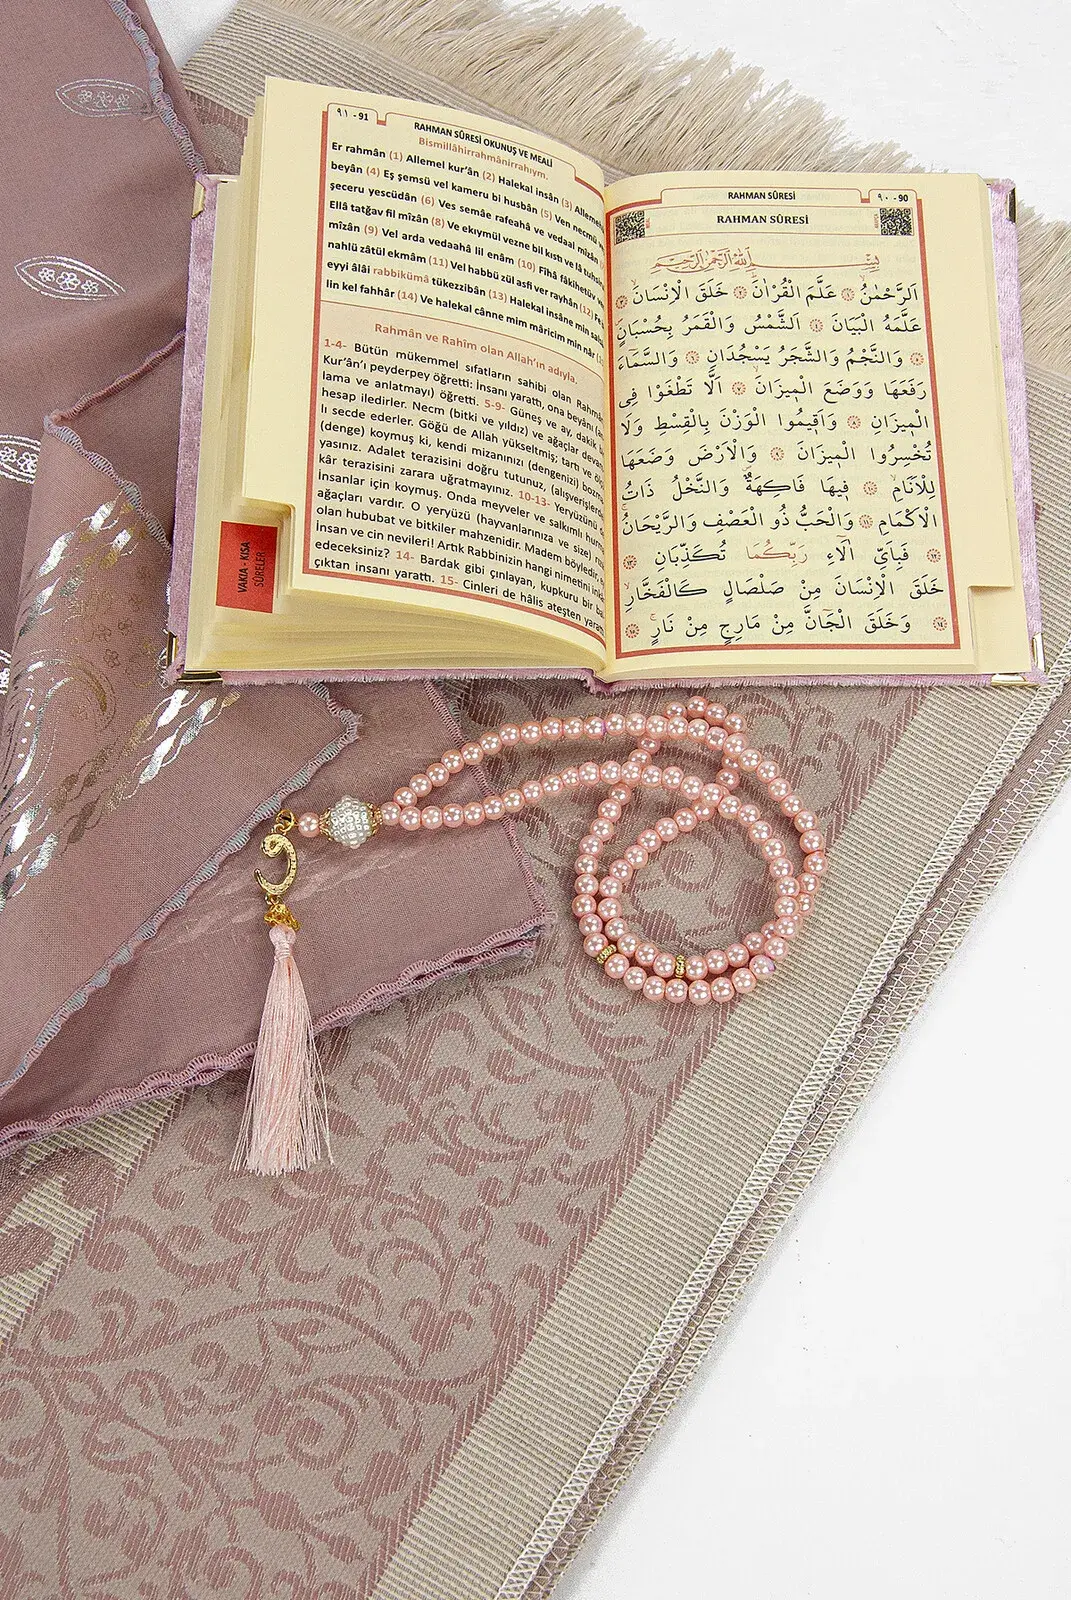 ٩١ - 91
RAHMAN SÛRESİ OKUNUŞ VE MEALİ
Bismillâhirrahmânirrahıym.
Er rahmân (1) Allemel kur'ân (2) Halekal insân (3) Allemehül
beyân (4) Eş şemsü vel kameru bi husbân (5) Ven necmü
şeceru yescüdân (6) Ves semâe rafeahâ ve vedaal mîzân (7)
Ellâ tatğav fil mîzân (8) Ve ekıymül vezne bil kıstı ve lâ tuhsirul
mîzân (9) Vel arda vedaahâ lil enâm (10) Fîhâ fâkihetüv
nahlü zâtül ekmâm (11) Vel habbü zül asfi ver rayhân (12) Fe bi
eyyi âlâi rabbikümâ tükezzibân (13) Halekal insâne min sal
lin kel fahhâr (14) Ve halekal cânne mim mâricim min nâr
Rahmân ve Rahîm olan Allah'ın adıyla.
1-4- Bütün mükemmel sıfatların sahibi olan Rahmân,
Kur'ân'ı peyderpey öğretti: İnsanı yarattı, ona beyânı
lama ve anlatmayı) öğretti. 5-9- Güneş ve ay, dakik
hesap iledirler. Necm (bitki ve yıldız) ve ağaçlar
lı secde ederler. Göğü de Allah yükseltmiş; tartı ve
(denge) koymuş ki, kendi mizanınızı (dengenizi)
yasınız. Adalet terazisini doğru tutunuz, (alışverişlerde)
kâr terazisini zarara uğratmayınız. 10-13- Yeryüzünü
insanlar için koymuş. Onda meyveler ve salkımlı hurma
ağaçları vardır. O yeryüzü (hayvanlarınıza ve size)
olan hububat ve bitkiler mahzenidir. Madem böyledir,
insan ve cin nevileri! Artık Rabbinizin hangi nimetini
edeceksiniz? 14- Bardak gibi çınlayan, kupkuru bir
çıktan insanı yarattı. 15- Cinleri de hâlis ateşten
VAKIA - KISA
SÛRELER
RAHMAN SÛRESİ
٩٠ - 90
RAHMAN SÛRESİ
بِسْمِ اللّٰهِ الرَّحْمٰنِ الرَّحِيمِ
اَلرَّحْمٰنُۙ ﴿١﴾ عَلَّمَ الْقُرْاٰنَۜ ﴿٢﴾ خَلَقَ الْاِنْسَانَۙ ﴿٣﴾
عَلَّمَهُ الْبَيَانَ ﴿٤﴾ اَلشَّمْسُ وَالْقَمَرُ بِحُسْبَانٍ
﴿٥﴾ وَالنَّجْمُ وَالشَّجَرُ يَسْجُدَانِ ﴿٦﴾ وَالسَّمَٓاءَ
رَفَعَهَا وَوَضَعَ الْم۪يزَانَۙ ﴿٧﴾ اَلَّا تَطْغَوْا فِي
الْم۪يزَانِ ﴿٨﴾ وَاَق۪يمُوا الْوَزْنَ بِالْقِسْطِ وَلَا
تُخْسِرُوا الْم۪يزَانَ ﴿٩﴾ وَالْاَرْضَ وَضَعَهَا
لِلْاَنَامِۙ ﴿١٠﴾ ف۪يهَا فَاكِهَةٌۖ وَالنَّخْلُ ذَاتُ
الْاَكْمَامِ ﴿١١﴾ وَالْحَبُّ ذُو الْعَصْفِ وَالرَّيْحَانُۚ
﴿١٢﴾ فَبِاَيِّ اٰلَٓاءِ رَبِّكُمَا تُكَذِّبَانِ ﴿١٣﴾
خَلَقَ الْاِنْسَانَ مِنْ صَلْصَالٍ كَالْفَخَّارِۙ
﴿١٤﴾ وَخَلَقَ الْجَٓانَّ مِنْ مَارِجٍ مِنْ نَارٍۚ ﴿١٥﴾